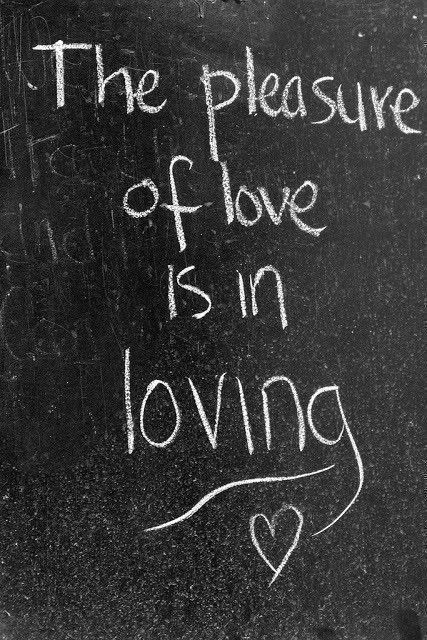 The pleasure
of love
is in
loving